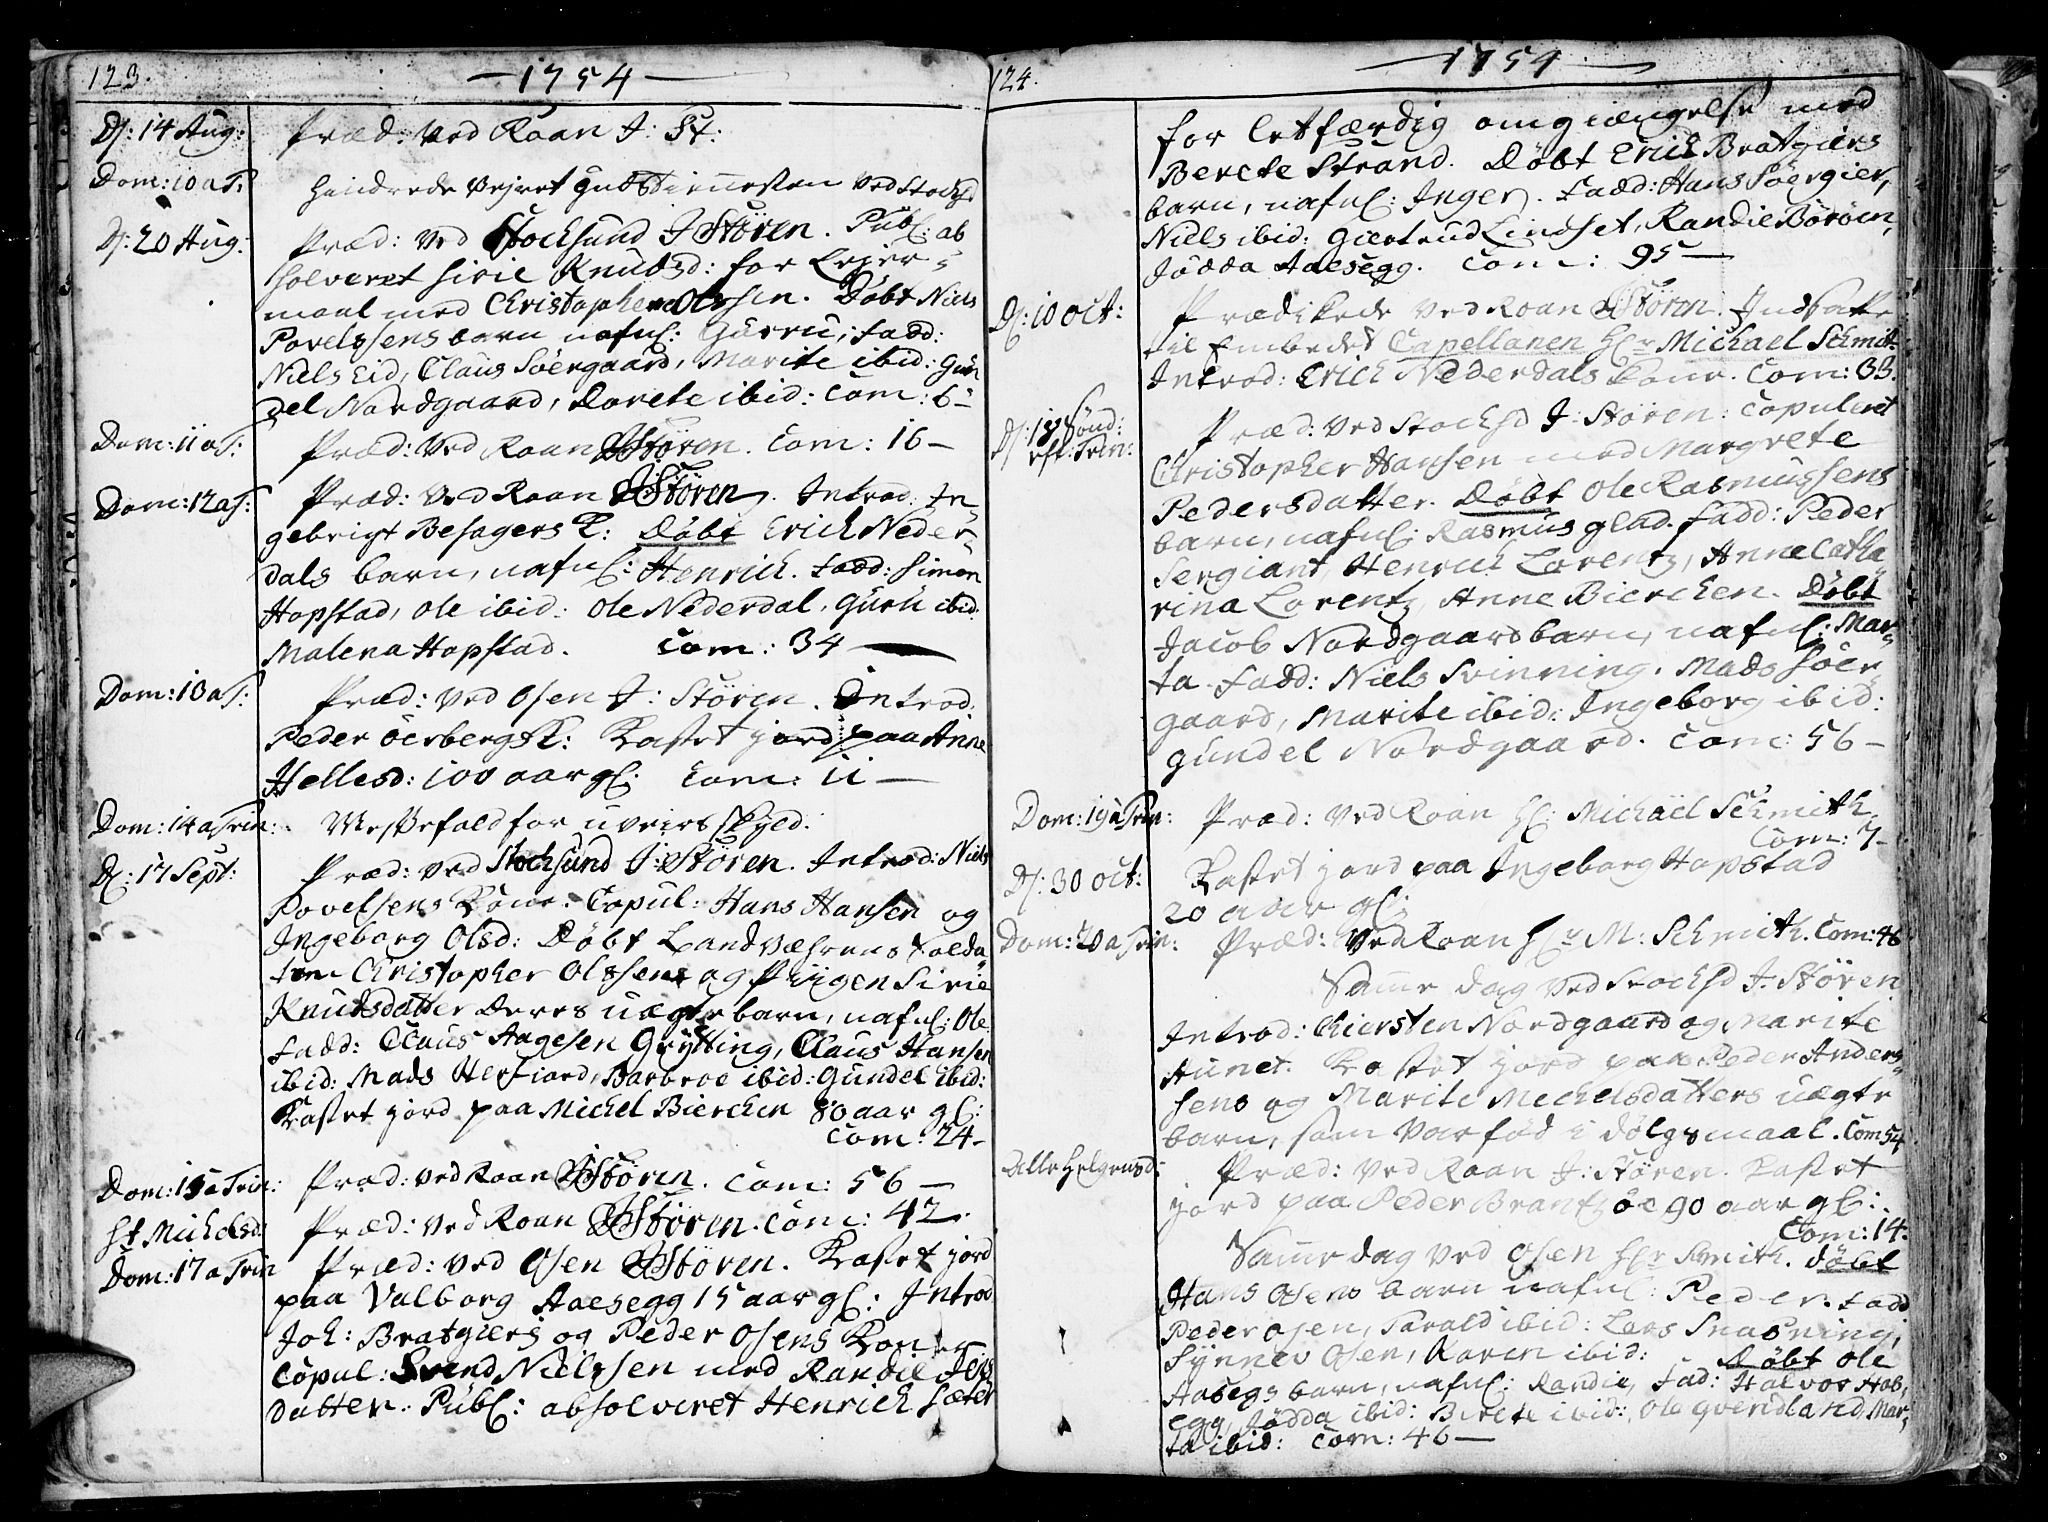 123.
1754
D: 14 Aug:
Præd: ved Roan J: St:
Dom: 10 a T:
hindrede Vejret Gudstienesten ved Stocksd
D: 20 Aug:
Præd: ved Stocksund J Stören. Publ: ab
solveret Sirie Knudsd: for Lejer-
maal med Christopher Olssen. Döbt Niels
Povelssens barn nafnl: Gurru, fadd:
Niels Eid, Claus Söergaard, Marite ibid: Gun
del Nordgaard, Dorete ibid: Com: 6-
Dom: 11 a T:
Præd: ved Roan J Stören. Com: 16-
Dom: 12 a T:
Præd: ved Roan J Stören. Introd: In-
gebrigt Besagers K: Döbt Erich Neder-
dals barn, nafnl: Henrich. Fadd: Simon
Hopstad, Ole ibid: Ole Nederdal, Guru ibid:
Malena Hopstad. Com: 34
Dom: 13 a T:
Præd: ved Osen J: Stören. Introd:
Peder Öerbergs K: Kastet jord paa Anne
Hellesd: 100 aar gl: Com: 11-
Dom: 14 a Trin:
Messefald for uveirs skyld.
D: 17 Sept:
Præd: ved Stocksund J: Stören. Introd: Niels
Povelsens Kone. Copul: Hans Hansen og
Ingeborg Olsd: Döbt Landværens Solda-
ten Christopher Olssens og Piigen Sirie
Knudsdatter deres uægte barn, nafnl: Ole
Fadd: Claus Aagesen Grytting, Claus Hansen
ibid: Mads Herfiord, Barbroe ibid: Gundel ibid:
Kastet jord paa Michel Bierchen 80 aar gl:
Com: 24-
Dom: 15 a Trin:
Præd: ved Roan J Stören. Com: 56-
St Michelsd:
Præd: ved Roan J Stören. Com: 42.
Dom: 17 a Trin
Præd: ved Osen J Stören. Kastet jord
paa Valborg Aaesegg 15 aar gl: Introd
Joh: Bratgiers og Peder Osens Koner
Copul: Svend Nielssen med Randie Jens
datter. Publ: absolveret Henrich Sæter
124.
1754
for letfærdig omgiængelse med
Berete Strand. Döbt Erich Bratgiers
barn, nafnl: Inger. Fadd: Hans Söergier,
Niels ibid: Giertrud Lindset, Randie Böröen,
Jödda Aaesegg. Com: 95-
D: 10 Oct:
Prædikede ved Roan J Stören. Indsatte
til Embedet Capellanen Hr Michael Schmit.
Introd: Erich Nederdals Kone. Com: 33.
D: 18 Sönd:
eft: Trin:
Præd: ved Stocksd J: Stören: Copuleret
Christopher Hansen med Margrete
Pedersdatter. Döbt Ole Rasmussens
barn, nafnl: Rasmus glad. Fadd: Peder
Sergiant, Henrich Lorentz, Anne Catha-
rina Lorentz, Anne Bierchen. Döbt
Jacob Nordgaards barn, nafnl: Mar-
ta. Fadd: Niels Svinning, Mads Söer-
gaard, Marite ibid: Ingeborg ibid:
Gundel Nordgaard. Com: 56-
Dom: 19 a Trin:
Præd: ved Roan Hr: Michaël Schmith.
Com: 7-
D: 30 Oct:
Kastet jord paa Ingeborg Hopstad
20 aar gl:
Dom: 20 a Trin:
Præd: ved Roan Hr M: Schmith. Com: 46
Samme dag ved Stocksd J: Stören
Introd: Kiersten Nordgaard og Marite
Aunet. Kastet jord paa Peder Anders-
sens og Marite Mechelsdatters uægte
barn, som var föd i dölgsmaal. Com 54
Alle Helgensd:
Præd: ved Roan J: Stören. Kastet
jord paa Peder Brantzöe 90 aar gl:
Com: 14.
Samme dag ved Osen Hr Smith. Döbt
Hans Osens barn nafnl: Peder. Fadd
Peder Osen, Tarald ibid: Lars Snasning,
Synnev Osen, Karen ibid: Döbt Ole
Aasegs barn, nafnl: Randie, Fad: Halvor Aas,
egg, Jödda ibid: Berete ibid: Ole Qvendland, Mar-
ta ibid: Com: 46-